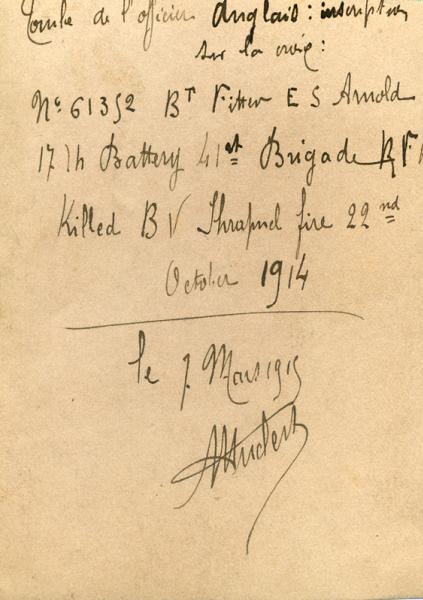 Tombe de l'officier Anglais : inscription
sur la croix :
N° 61352 BT Fitter E S Arnold
17 th Battery 41st Brigade R F
Killed B V Shrapnel fire 22 nd
October 1914
le 7 Mars 1915